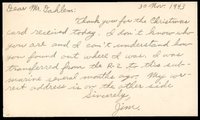 Dear Mr Dahlem: 30 Nov. 1943
Thank you for the Christmas
card received today. I don't know who
you are and I can't understand how
you found out where I was. I was
transferred from the R-2 to this sub-
marine several months ago. My cor-
rect address is on the other side
Sincerely,
Jim.